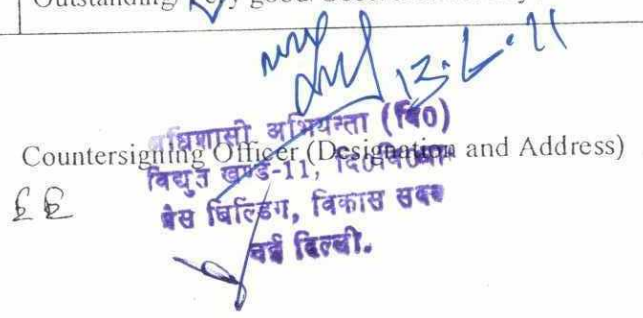 Outstanding/Very good
13.6.11
अधिशासी अभियन्ता (वि0)
Countersigning Officer (Designation and Address)
विद्युत खण्ड-11, दि0वि0प्रा0
EE
प्रेस बिल्डिंग, विकास सदन
नई दिल्ली.